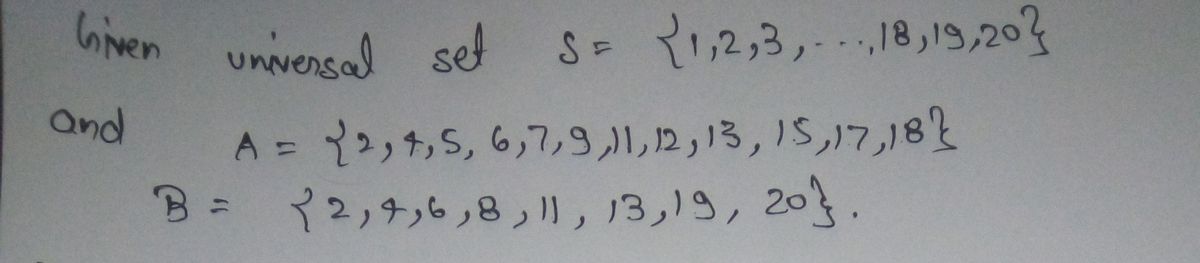 Given universal set S = {1,2,3,....,18,19,20}
and A = {2,4,5, 6,7,9,11,12,13, 15,17,18}
B = {2,4,6,8,11, 13,19, 20}.